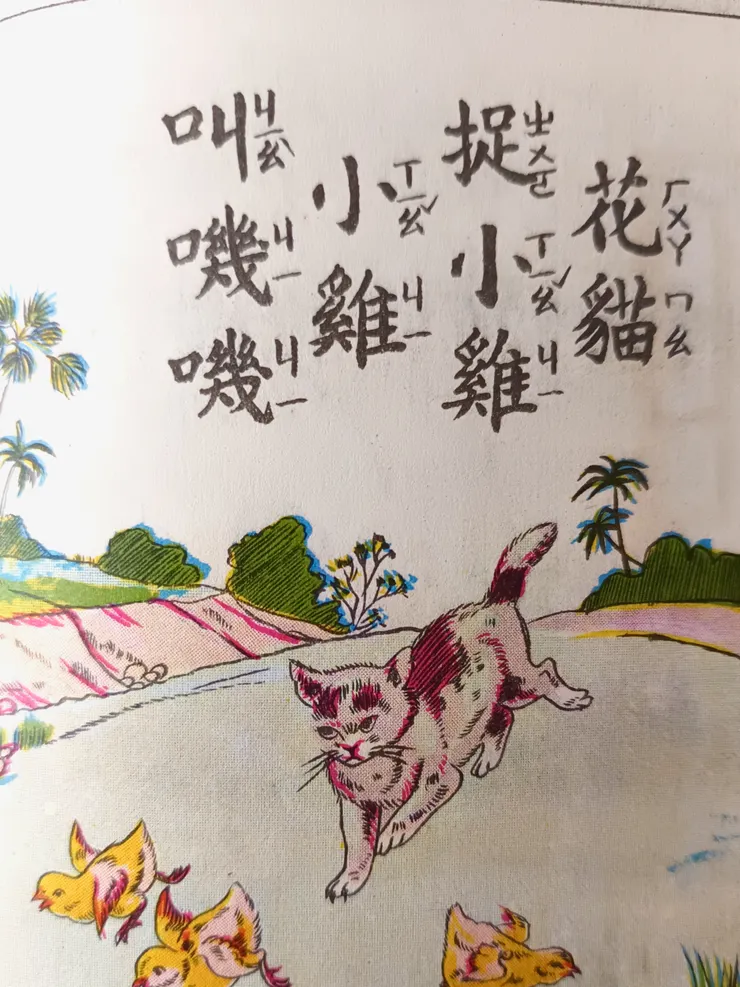 花ㄏㄨㄚ貓ㄇㄠ
捉ㄓㄨㄛ小ㄒㄧㄠˇ雞ㄐㄧ
小ㄒㄧㄠˇ雞ㄐㄧ
叫ㄐㄧㄠˋ嘰ㄐㄧ嘰ㄐㄧ